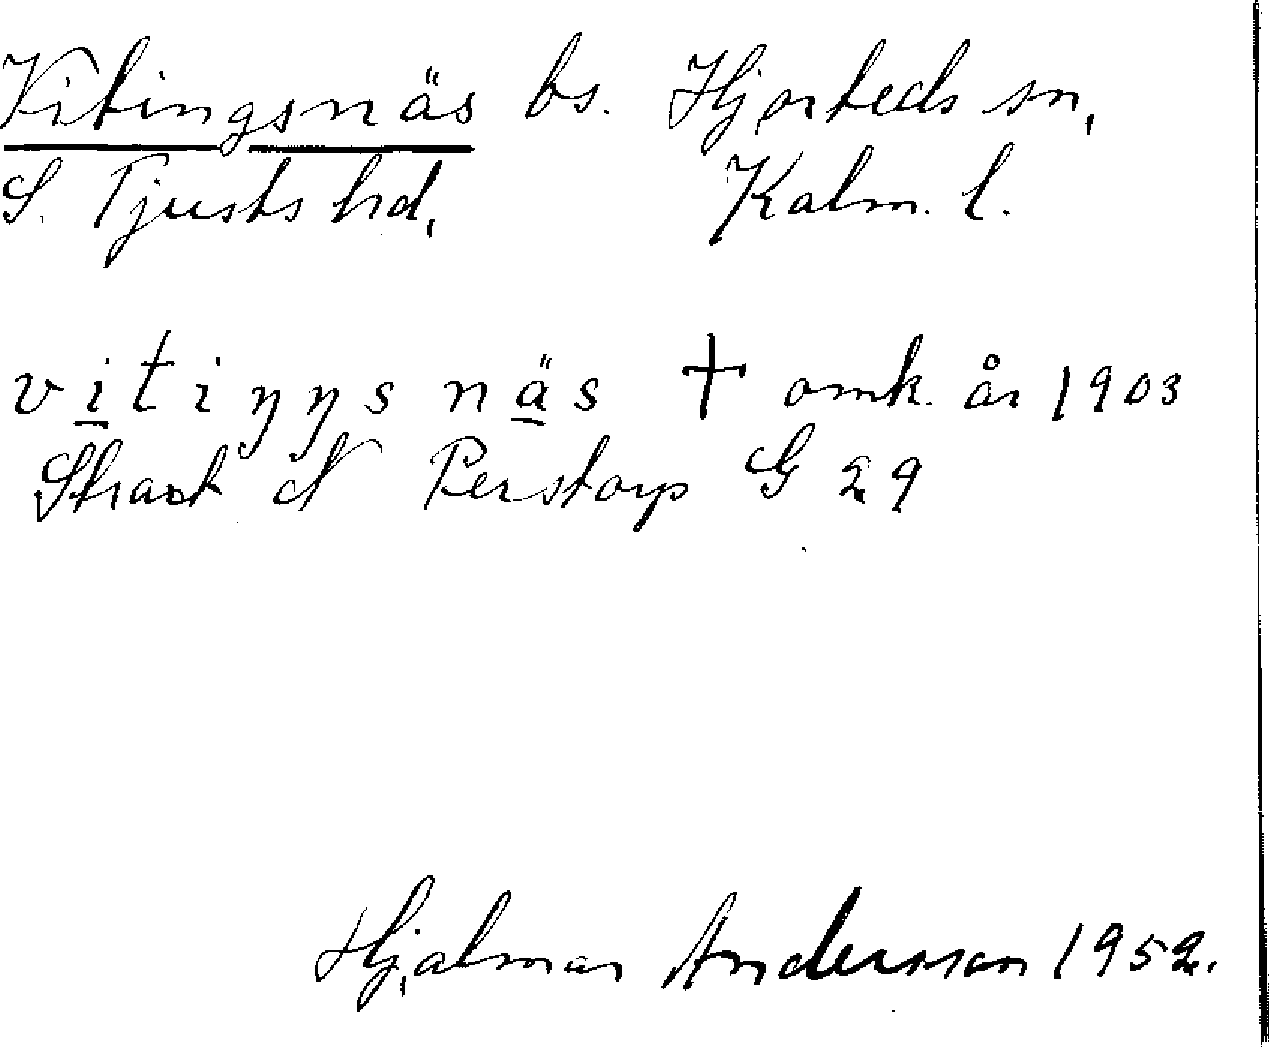 Vitingsnäs bs. Hjorteds sn,
S. Tjusts hd, Kalm. l.
vitiŋŋsnäs † omk. år 1903
Strax N Perstorp G 29
Hjalmar Andersson 1952.